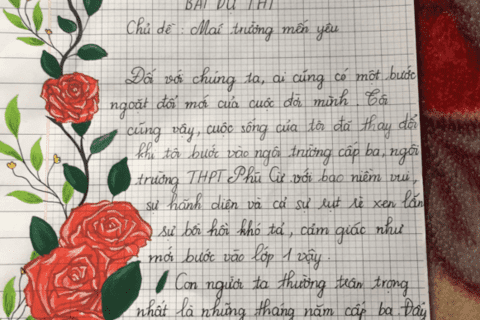 BÀI DỰ THI
Chủ đề : Mái trường mến yêu
Đối với chúng ta, ai cũng có một bước
ngoặt đổi mới của cuộc đời mình. Tôi
cũng vậy, cuộc sống của tôi đã thay đổi
khi tôi bước vào ngôi trường cấp ba, ngôi
trường THPT Phù Cừ với bao niềm vui,
sự hãnh diện và cả sự rụt rè xen lẫn
sự bồi hồi khó tả, cảm giác như
mới bước vào lớp 1 vậy.
Con người ta thường trân trọng
nhất là những tháng năm cấp ba. Đây